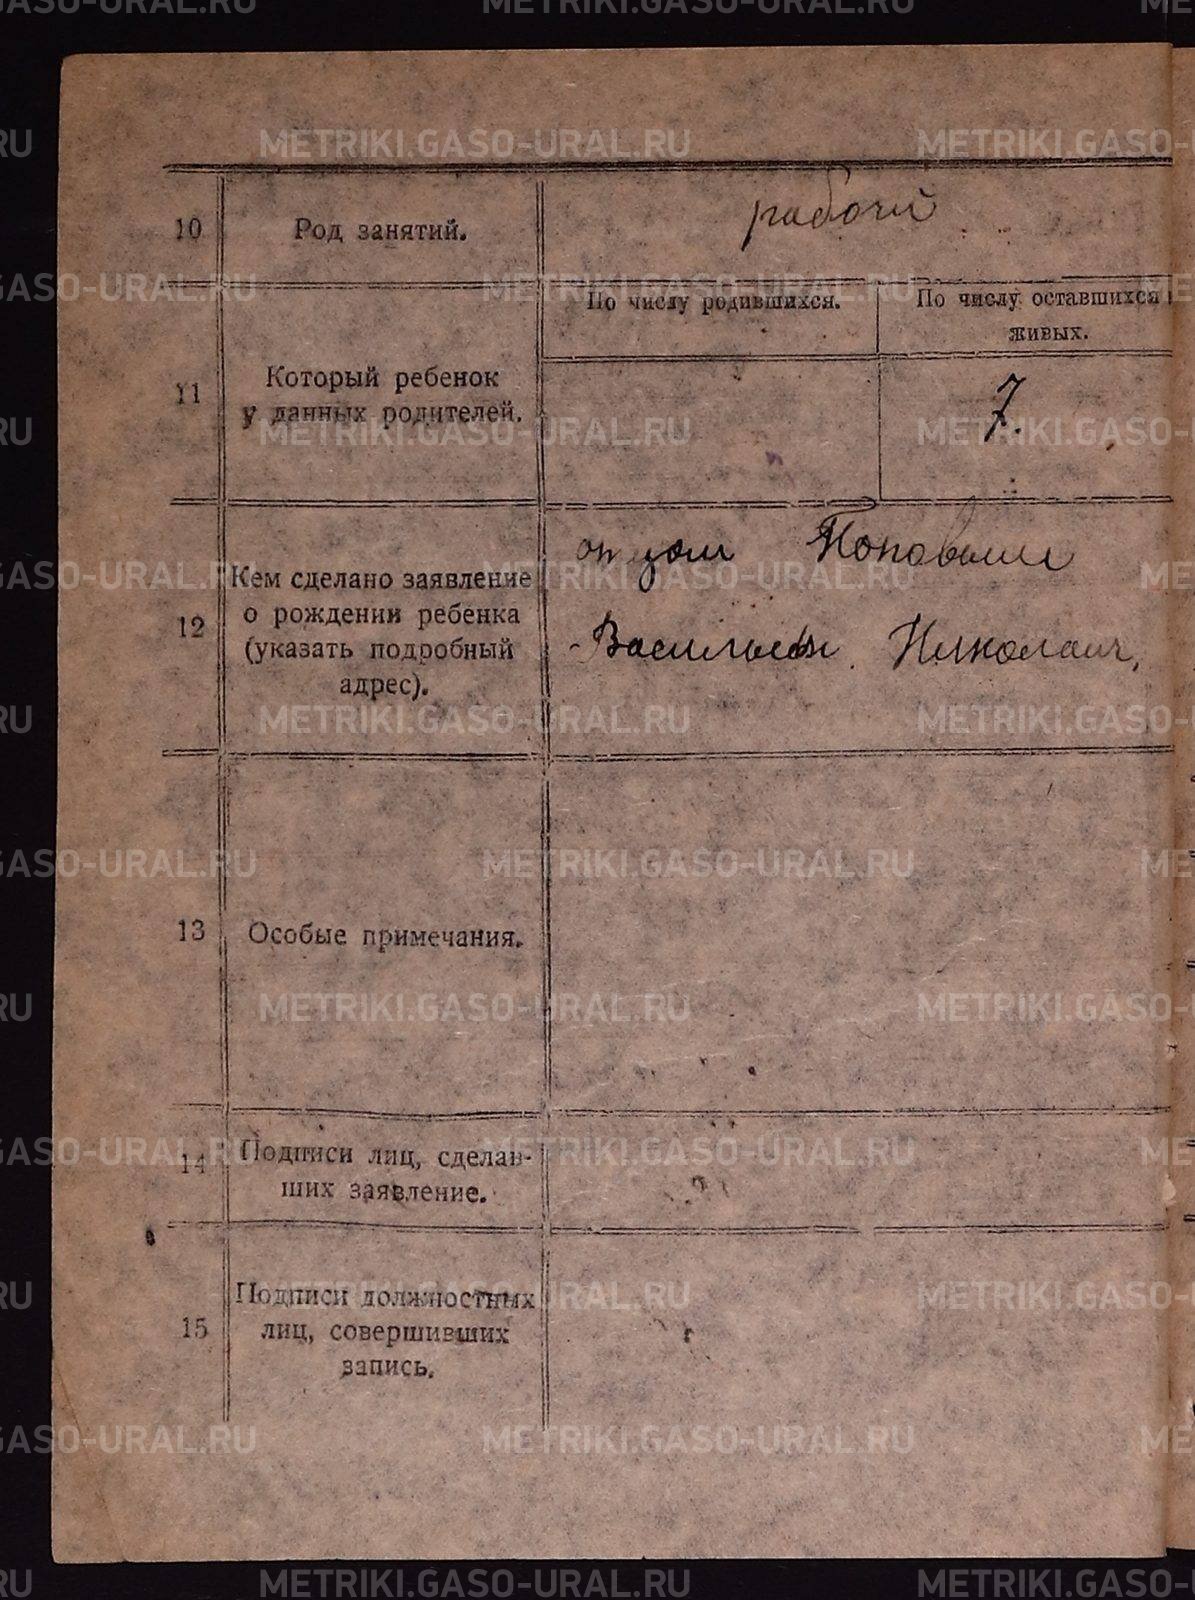 METRIKI.GASO-URAL.RU
10 Род занятий. рабочий
По числу родившихся.
По числу оставшихся
живых.
11 Который ребенок
у данных родителей.
7.
12 Кем сделано заявление
о рождении ребенка
(указать подробный
адрес).
отцом Поповым
Николаич.
13 Особые примечания.
14 Подписи лиц, сделав-
ших заявление.
15 Подписи должностных
лиц, совершивших
запись.